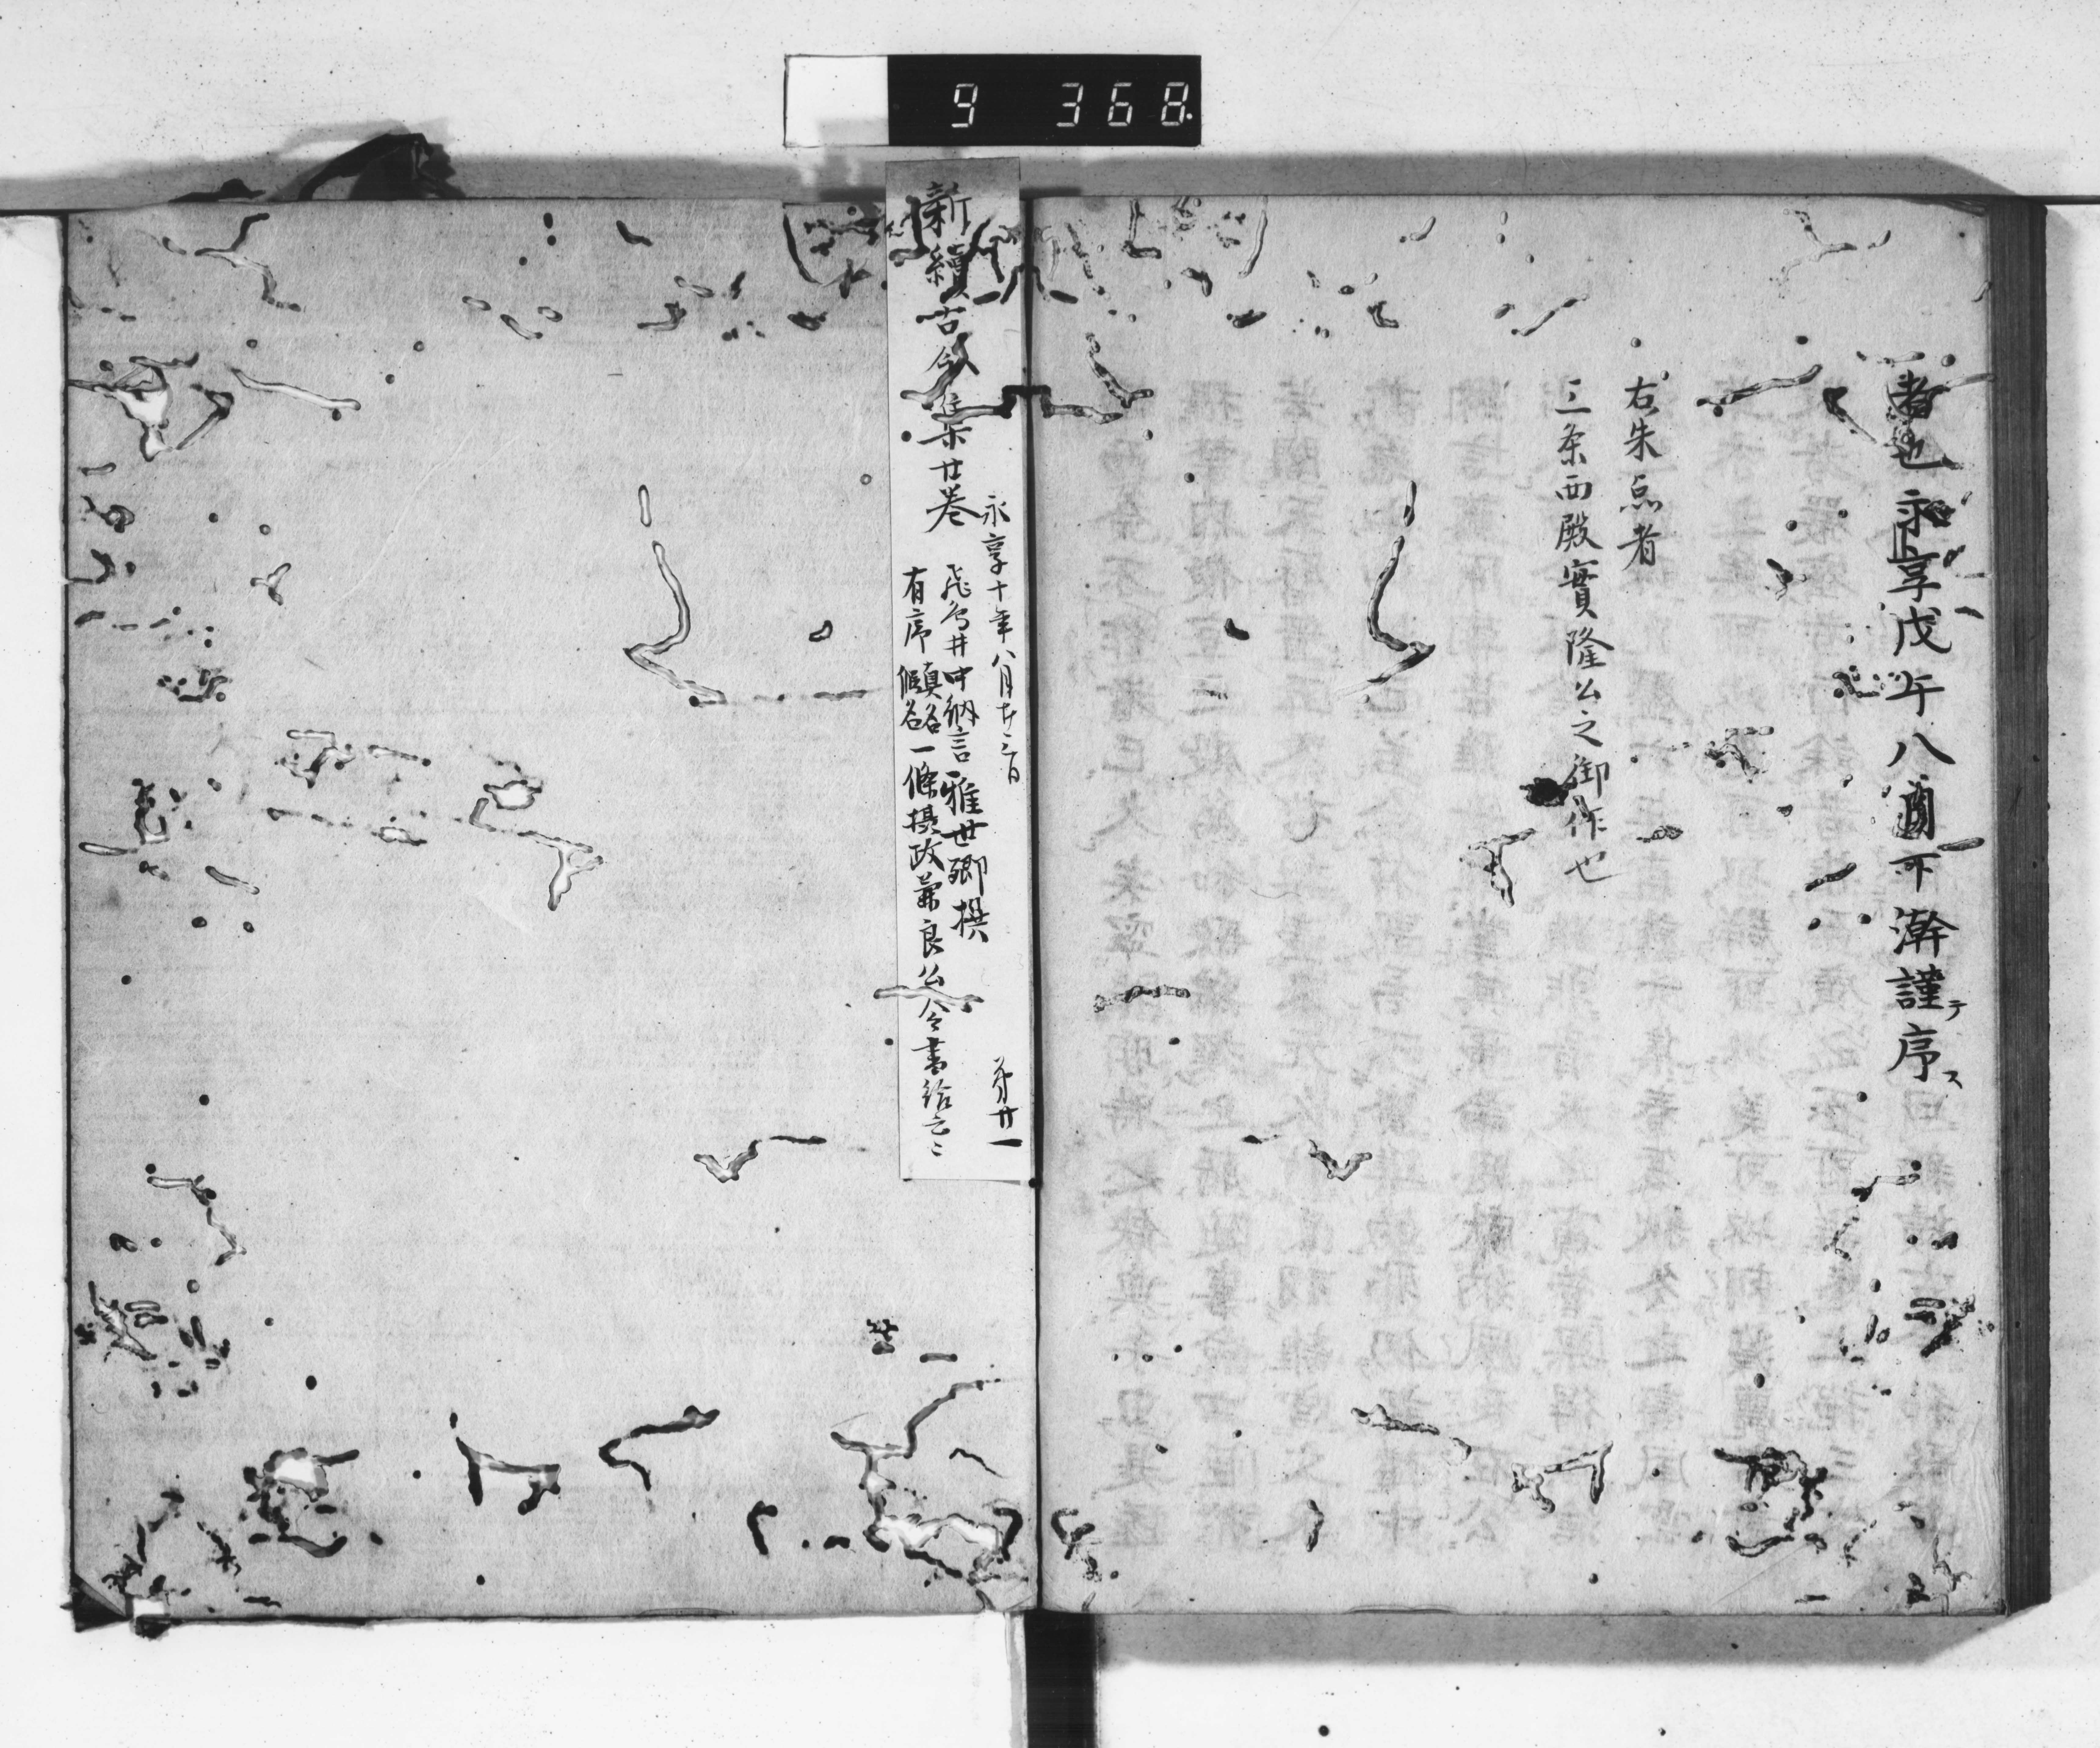 9 368.
者也永享戊午八月下澣謹テ序ス
右朱点者
三条西殿實隆公之御作也
永享十年八月廿三日
第廿一
新續古今集廿巻
飛鳥井中納言雅世卿撰
有序 真名 假名 一條摂政兼良公令書給云々